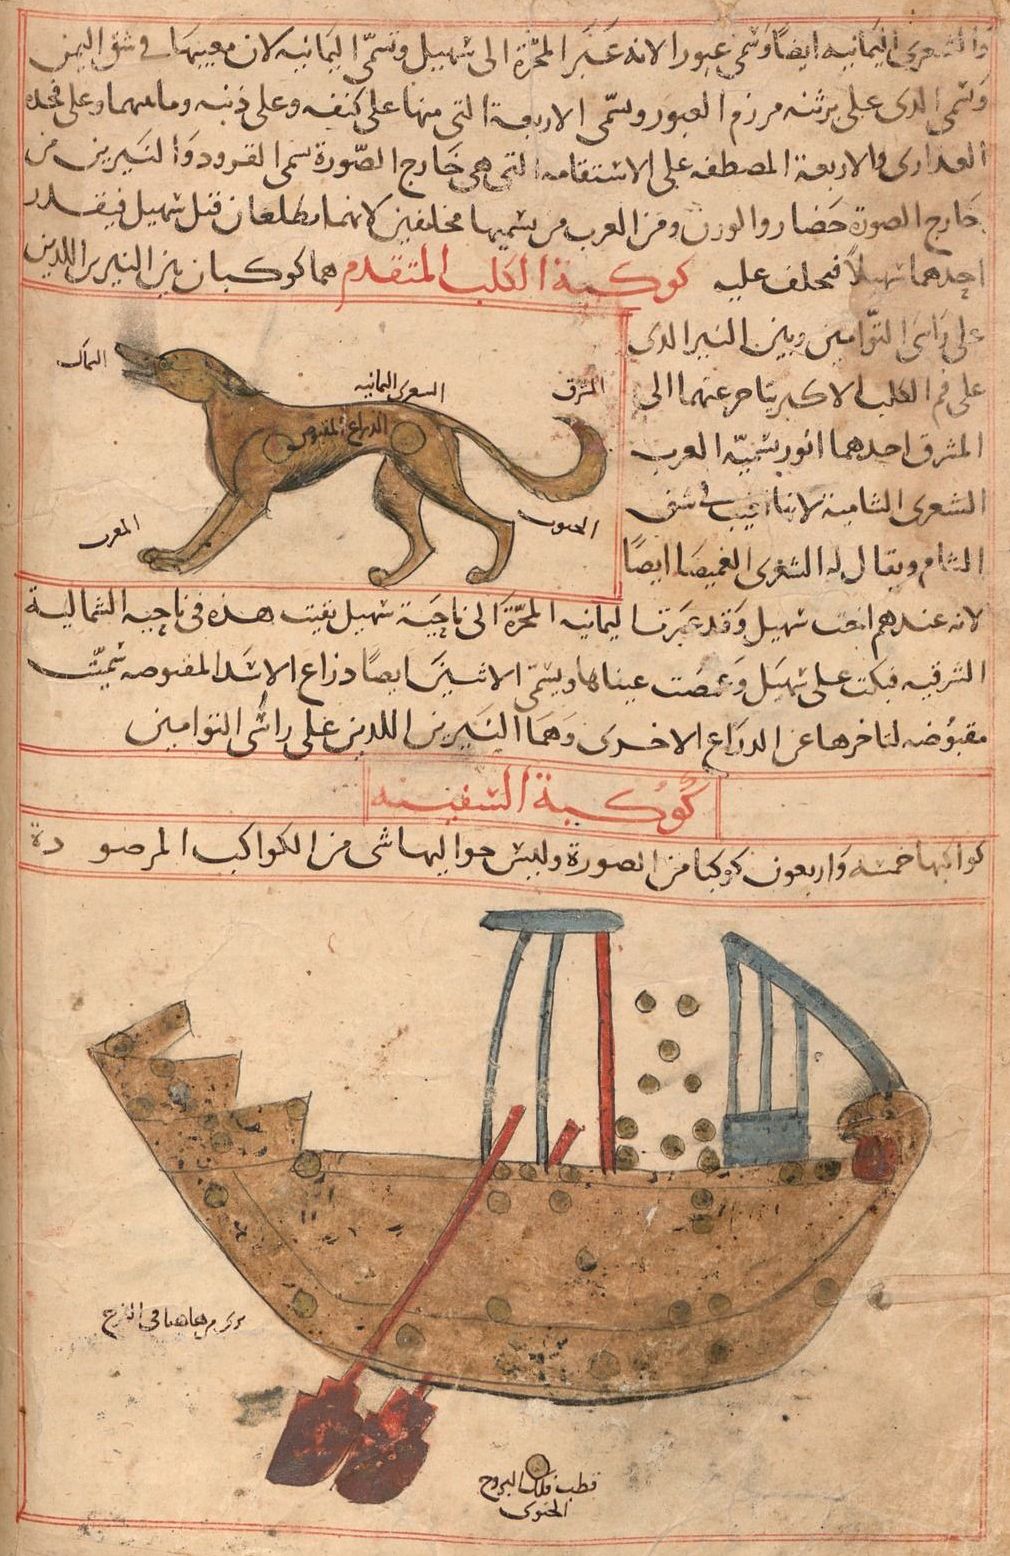 والشعرى اليمانيه ايضا وتسمى عبورا لانه عبر المجرة الى سهيل وتسمى اليمانيه لان مغيبها فى شق اليمن
وتسمى الذى على برثنه مرزم العبور وتسمى الاربعة التى منها على كتفه وعلى ذنبه وما بينهما وعلى فخذه
العذارى والاربعة المصطفه على الاستقامه التى هى خارج الصورة تسمى القرود والنيرين من
خارج الصورة حضار والوزن ومن العرب من يسميها محلفين لانهما يطلعان قبل سهيل فيقدر
احدهما سهيلا فيحلف عليه كوكبة الكلب المتقدم هما كوكبان بين النيرين اللذين
على راسى التوامين وبين النير الذى
على فم الكلب الاكبر يتاخر عنهما الى
المشرق احدهما انور تسميه العرب
الشعرى الشامية لانها تغيب فى شق
الشام ويقال له الشعرى الغميصا ايضا
الشمال
الشعرى اليمانيه
المشرق
الذراع المقبوض
المغرب
الجنوب
لانه عندهم اخت سهيل وقد عبرت اليمانيه المجرة الى ناحية سهيل بقيت هذه فى ناحيه الشمالية
الشرقيه فبكت على سهيل وغمصت عيناها ويسمى الاثنين ايضا ذراع الاسد المقبوضه سميت
مقبوضه لتاخرها عن الذراع الاخرى وهما النيرين اللذين على راسى التوامين
كوكبة السفينه
كواكبها خمسه واربعون كوكبا من الصورة وليس حواليها شى من الكواكب المرصودة
قطب فلك البروج
الجنوبى